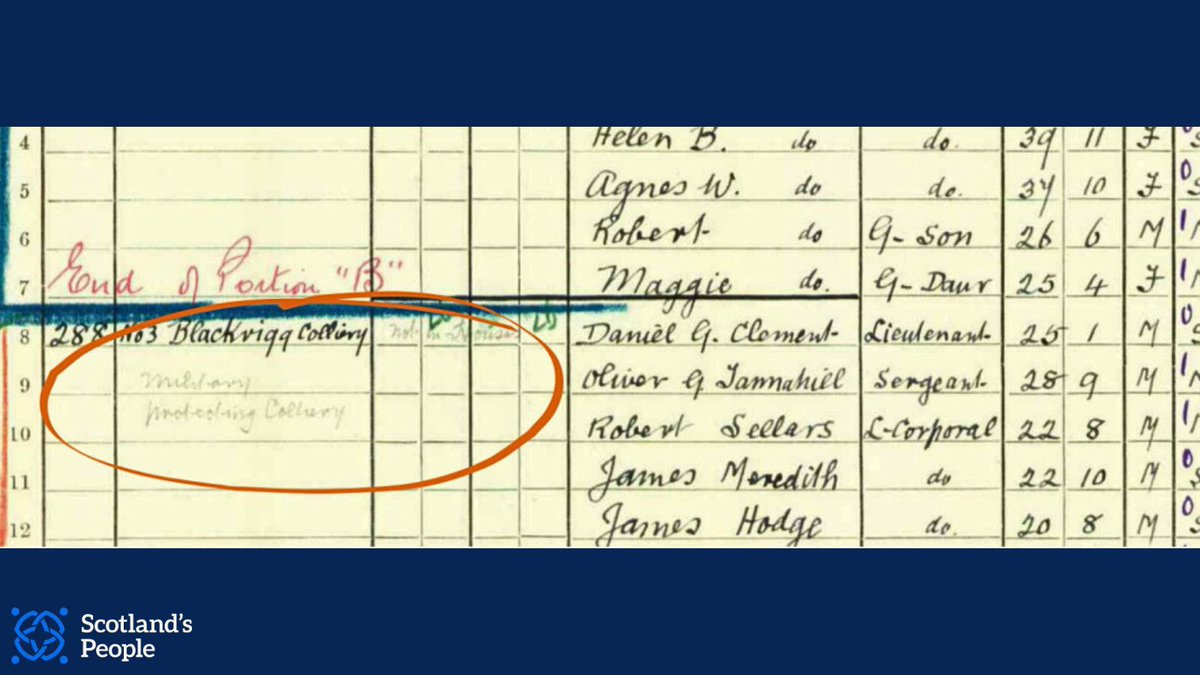 4 Helen B. do do. 39 11 F 0
5 Agnes W. do do. 37 10 F 0
6 Robert do G-Son 26 6 M 1
End of Portion "B"
7 Maggie do. G-Daur 25 4 F 1
8 288 No3 Blackrigg Colliery not in House Daniel G. Clement Lieutenant 25 1 M 0
9 Military Oliver G Tannahill Sergeant 28 9 M 1
protecting Colliery
10 Robert Sellars L-Corporal 22 8 M 1
11 James Meredith do 22 10 M 0
12 James Hodge do. 20 8 M 0
Scotland's
People